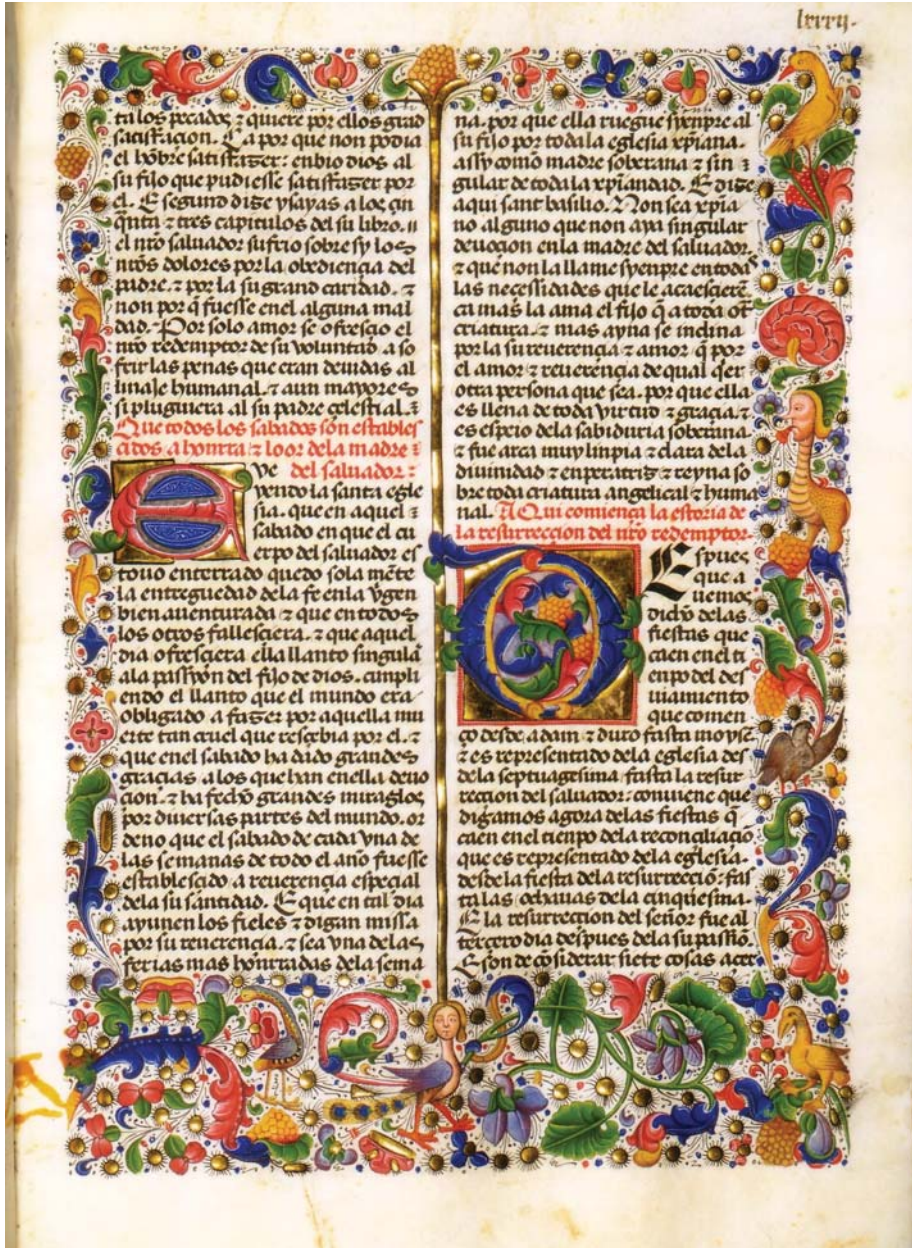 lxxxij.
ta los pecados ⁊ quiere por ellos grad
satisfacion. Ca por que non podia
el hõbre satisfazer: enbio dios al
su fijo que pudiesse satisfazer por
el. E segund dize ysayas a los çin
q̃nta ⁊ tres capitulos del su libro.
el nr̃o saluador sufrio sobre sy los
nr̃os dolores por la obediençia del
padre. ⁊ por la su grand caridad. ⁊
non por q̃ fuesse en el alguna mal
dad. Por solo amor se ofresçio el
nr̃o redemptor de su voluntad a so
frir las penas que eran deuidas al
linaje humanal. ⁊ aun mayores
si pluguiera al su padre çelestial. ⁊
Que todos los sabados son estables
çidos a honrra ⁊ loor dela madre
del saluador:
ve
yendo la santa egle
sia. que en aquel
sabado en que el cu
erpo del saluador es
touo enterrado quedo sola mẽte
la entreguedad dela fe en la vgen
bien auenturada ⁊ que en todos
los otros fallesçiera. ⁊ que aquel
dia ofresçiera ella llanto singulã
ala passyon del fijo de dios. cunpli
endo el llanto que el mundo era
obligado a fazer por aquella mu
erte tan cruel que resçebia por el. ⁊
que en el sabado ha dado grandes
graçias a los que han en ella deuo
çion. ⁊ ha fecho grandes miraglos
por diuersas partes del mundo. or
deno que el sabado de cada vna de
las semanas de todo el año fuesse
establesçido a reuerençia espeçial
dela su santidad. E que en tal dia
ayunen los fieles ⁊ digan missa
por su reuerençia. ⁊ sea vna delas
ferias mas honrradas dela sema
na. por que ella ruegue syenpre al
su fijo por toda la eglesia xp̃iana.
assy como madre soberana ⁊ sin
gular de toda la xp̃iandad. E dize
aqui sant basilio. Non sea xp̃ia
no alguno que non aya singular
deuoçion en la madre del saluador.
⁊ que non la llame syenpre en todas
las necessidades que le acaesçierẽ
ca mas la ama el fijo q̃ a toda otr̃
criatura. ⁊ mas ayna se inclina
por la su reuerençia ⁊ amor q̃ por
el amor ⁊ reuerençia de qual q̃er
otra persona que sea. por que ella
es llena de toda virtud ⁊ graçia. ⁊
es espejo dela sabiduria soberana
⁊ fue arca muy linpia ⁊ clara dela
diuinidad ⁊ enperatriz ⁊ reyna so
bre toda criatura angelical ⁊ huma
nal. Aqui comiença la estoria de
la resurrecçion del nr̃o redemptor.
Espues
que a
uemos
dicho delas
fiestas que
caen en el ti
enpo del des
uiamiento
que comen
ço desde adam ⁊ duro fasta moysẽ
⁊ es representado dela eglesia des
de la septuagesima fasta la resur
recçion del saluador: conuiene que
digamos agora delas fiestas q̃
caen en el tienpo dela reconçiliaçiõ
que es representado dela eglesia.
desde la fiesta dela resurrecçiõ: fas
ta las ochauas dela çinquesima.
E la resurrecçion del señor fue al
terçero dia despues dela su passiõ.
E son de cõsiderar siete cosas açer